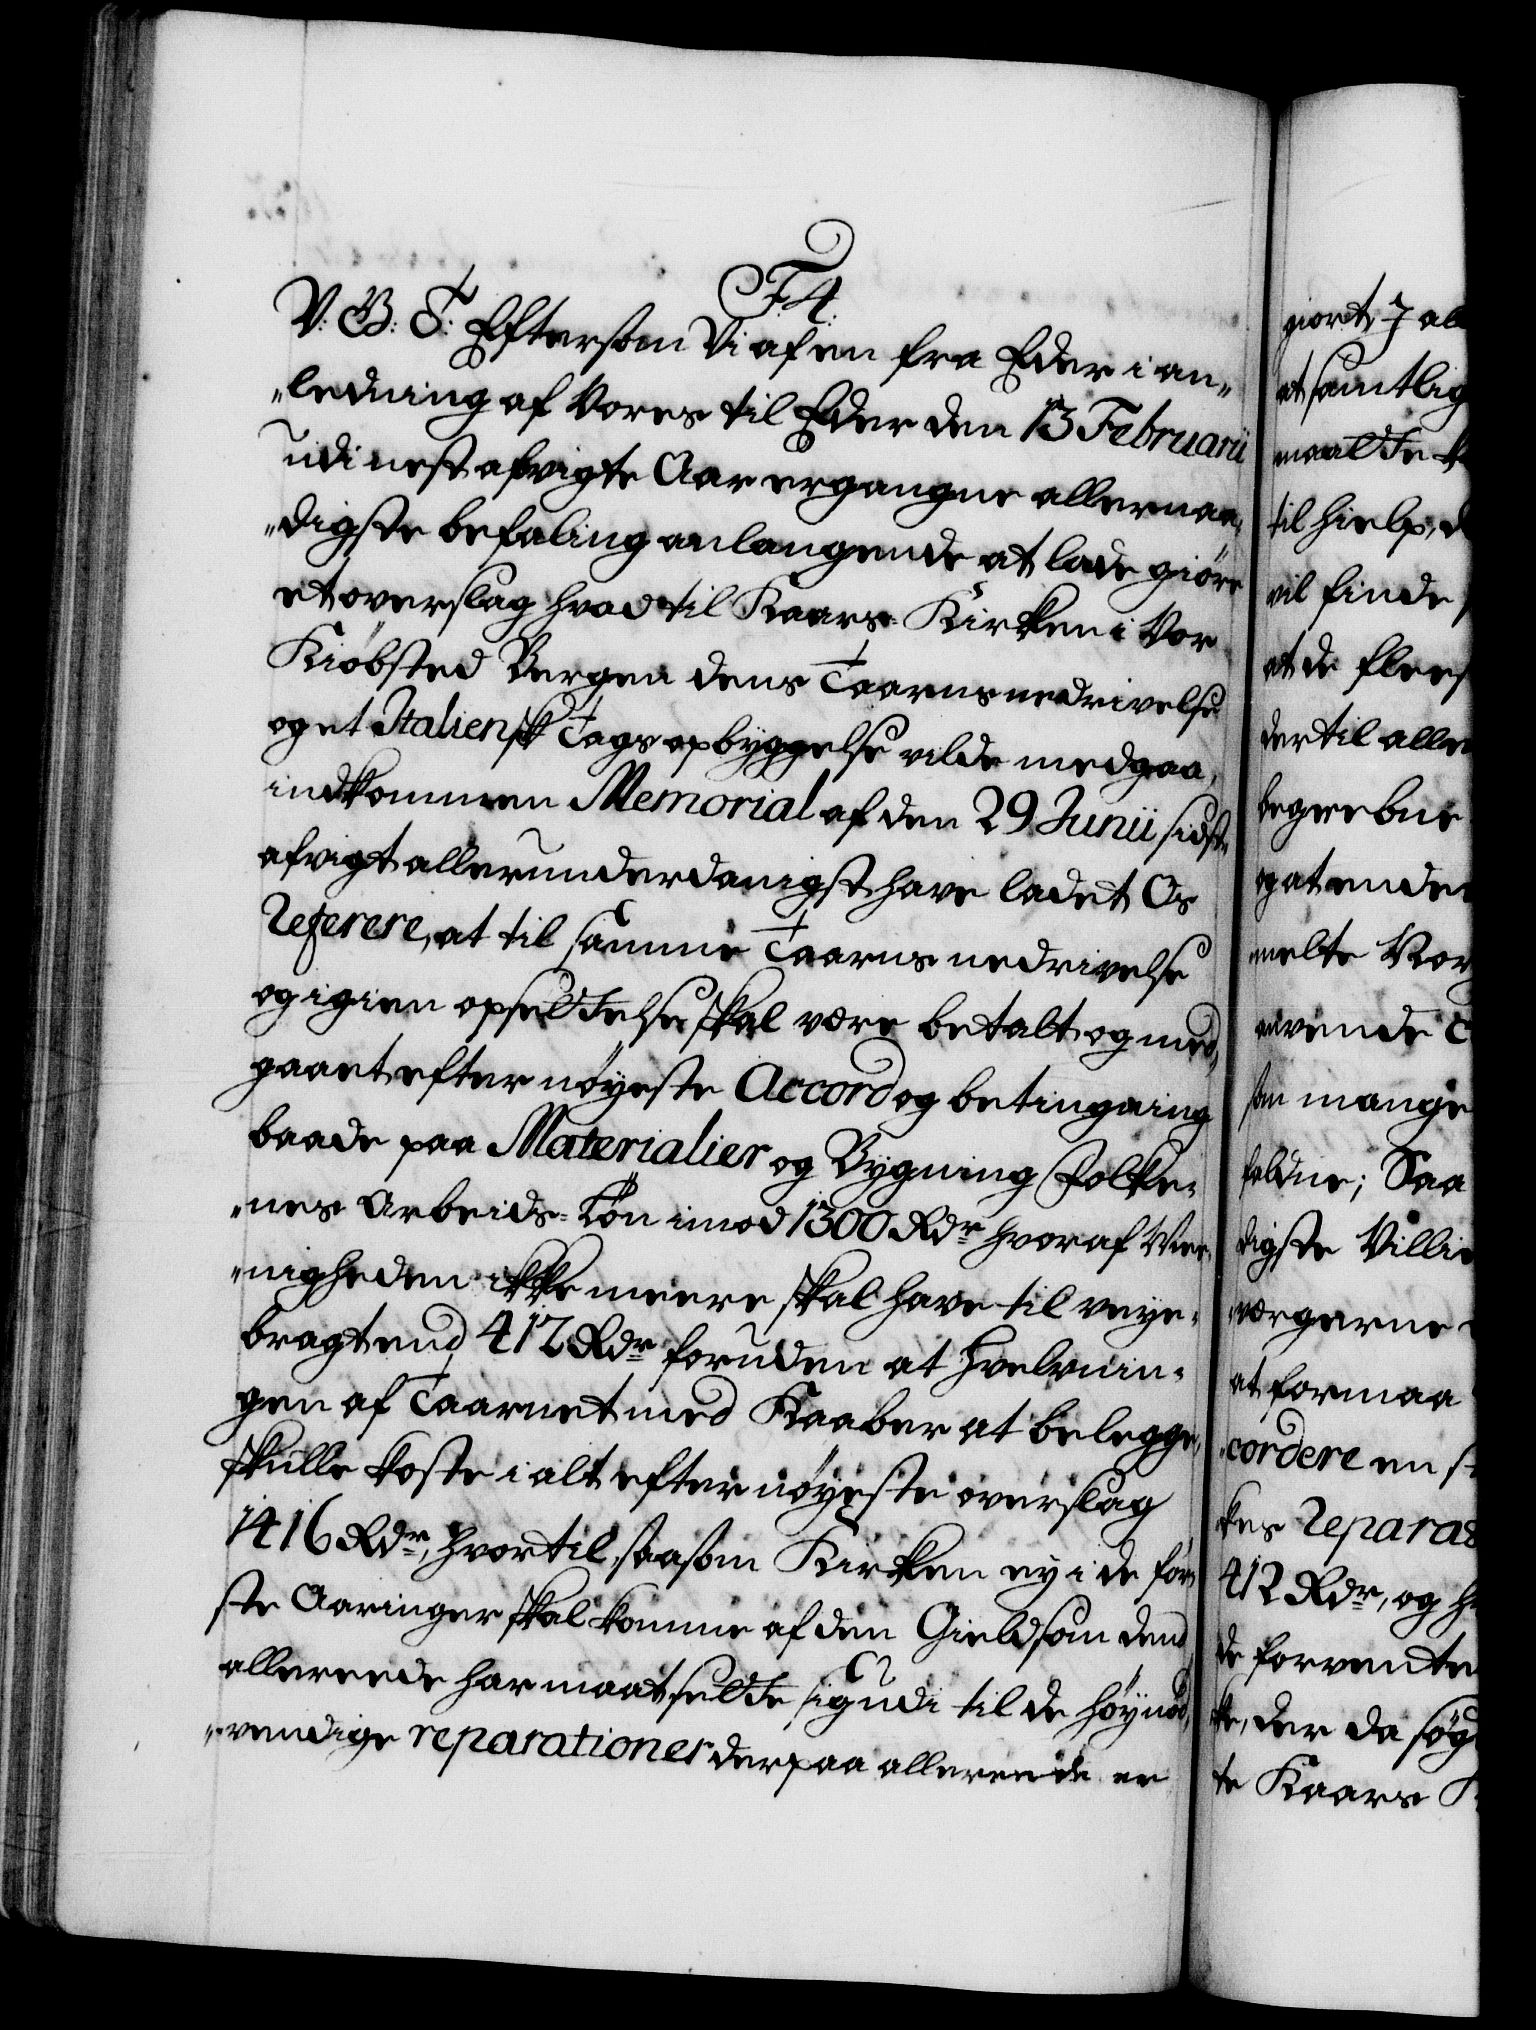 F. 4.
V: G: T: Eftersom Vi af en fra Eder i an„
„ledning af Vores til Eder den 13 Februarii
udi nest afvigte Aar ergangne allernaa„
„digste befaling anlangende at lade giöre
et overslag hvad til Kaars-Kirken i Vor
Kiöbsted Bergen dens Taarns nedrivelse
og et Italiensk Tags opbyggelse vilde medgaa,
indkommen Memorial af den 29 Junii sidst„
afvigt allerunderdanigst have ladet Os
Referere, at til samme Taarns nedrivelse
og igien opsettelse skal være betalt og med„
gaaet efter nöyeste Accord og betingning
baade paa Materialier og Bygning Folke„
„nes Arbeids-Lön imod 1300 Rdr hvoraf Mee„
„nigheden ikke meere skal have til veye„
bragt end 412 Rdr foruden at Hvelvnin„
gen af Taarnet med Kaaber at belegge,
skulle koste i alt efter nöyeste overslag
1416 Rdr, hvortil, saasom Kirken ey i de för„
ste Aaringer skal komme af den Gield som dend
allereede har maat sette sig udi til de höynöd„
„vendige reparationer derpaa allereede er
giort, J all
at samtlig
maatte
til hielp, d
vil finde
at de flees
dertil aller
begrebne
og at ende
melte Vor
anvende
som mange
faldne; Saa
digste Villie
værgerne
at formaa
„cordere en
kes Repara
412 Rdr, og h
de forvente
ke, der da söge
te Kaars K